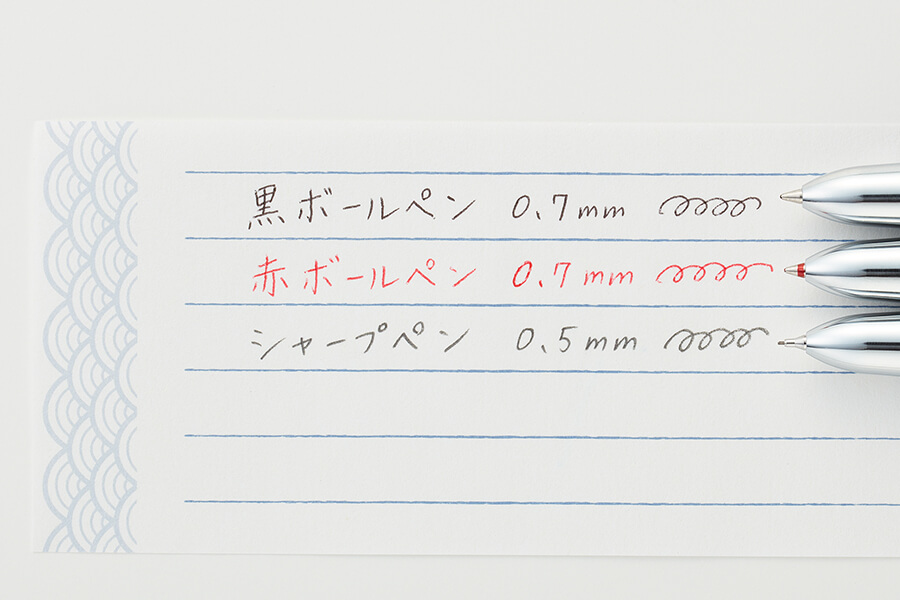 黒ボールペン 0.7mm
赤ボールペン 0.7mm
シャープペン 0.5mm